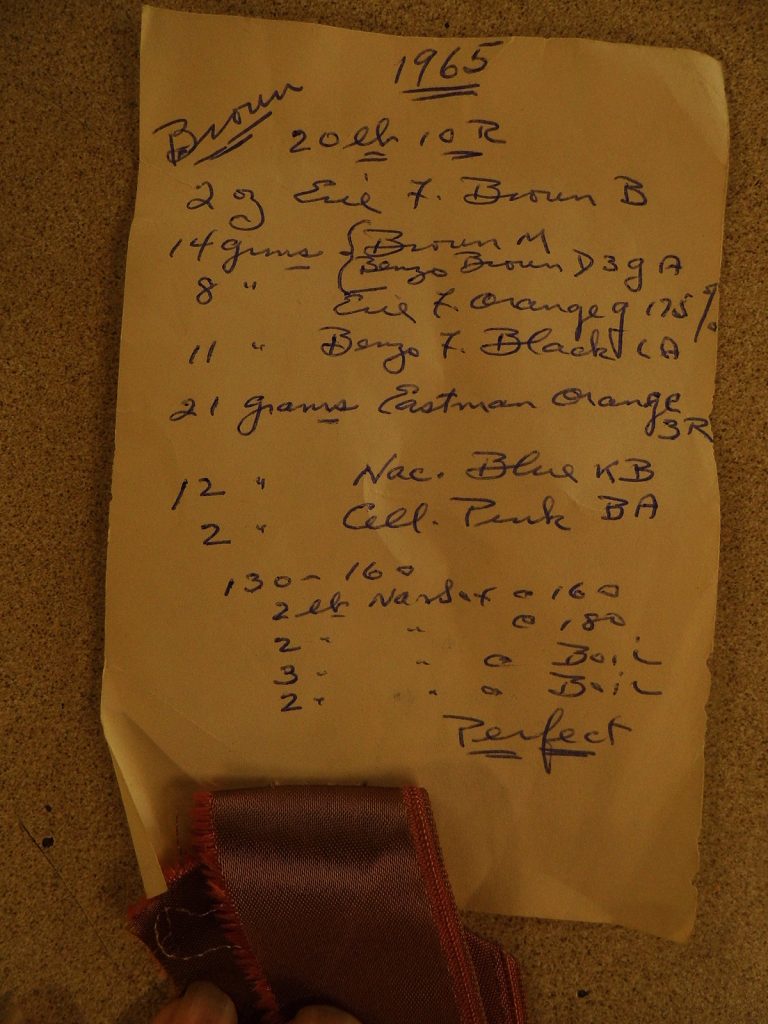 1965
Brown
20 lb 10 R
2 oz Erie F. Brown B
14 grms { Brown M
Benzo Brown D3G A
8 " Erie F. Orange g 175%
11 " Benzo F. Black LA
21 grams Eastman Orange
3R
12 " Nac. Blue KB
2 " Cell. Pink BA
130 - 160
2 lb @ 160
2 " " @ 180
3 " " @ Boil
2 " " @ Boil
Perfect